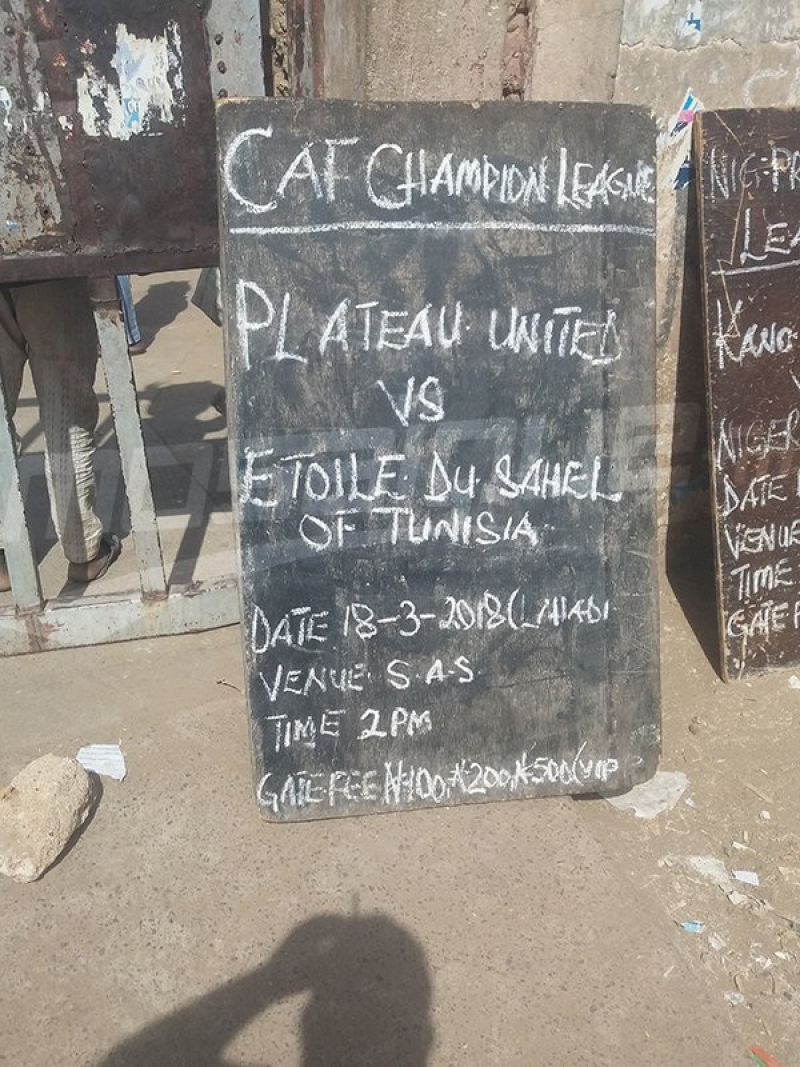 CAF CHAMPION LEAGUE
PLATEAU UNITED
VS
ETOILE DU SAHEL
OF TUNISIA
DATE 18-3-2018(LAHADI
VENUE S.A.S.
TIME 2PM
GATE FEE ₦100,₦200,₦500(VIP
NIG.PR
LEA
KANO
V
NIGER
DATE
VENUE
TIME
GATE F